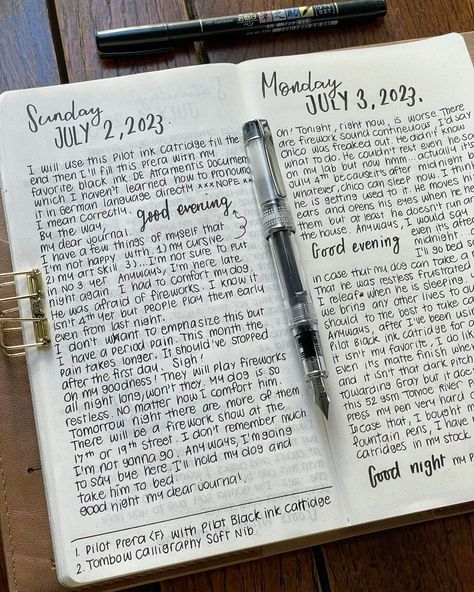 Sunday
JULY 2, 2023.
I will use this Pilot ink catridge till the end
and then I'll fill this prera with my
favorite black ink: De Atraments Document
which I haven't learned how to pronounce
it in German language directly ××××NOPE××
I mean correctly.
By the way, good evening
my dear journal.
I have a few things of myself that
I'm not happy with. 1) my cursive
2) my art skill 3)... I'm not sure to put
in No 3 yet. Anyways, I'm here late
night again. I had to comfort my dog.
He was afraid of fireworks. I know it
isn't 4th yet but people play them early
even from last night.
I don't want to emphasize this but
I have a period pain. This month the
pain takes longer. It should've stopped
after the first day. Sigh!
Oh my goodness! They will play fireworks
all night long, won't they. My dog is so
restless. No matter how I comfort him.
Tomorrow night there are more of them
There will be a firework show at the
17th or 19th street. I don't remember much
I'm not gonna go. Anyways, I'm going
to say bye here. I'll hold my dog and
take him to bed.
good night my dear journal.
1. Pilot Prera <F> with Pilot Black ink catridge
2. Tombow Calligraphy Soft Nib
Monday
JULY 3, 2023.
Oh! Tonight, right now, is worse. There
are firework sound continuously, I'd say
chico was freaked out. He didn't know
what to do. He couldn't rest even he sa
my lab but now hmm... actually it's
July 4th because it's after midnight n
whatever, chico can sleep now. I think
he is getting used to it. He moves hi
ears and opens his eyes when he h
them but at least he doesn't run ar
the house. Anyways, I would say
Good evening even it's a
midnight.
I'll go bed
In case that my dog can take a
that he was restless frustrated
I relea when he is sleeping
we bring any other lives to ou
should to the best to take ca
Anyways, after I've been usin
Pilot Black ink Catridge for
it isn't my favorite, I do lik
EVEN it's matte finish when
and it isn't that dark inten
towarding Gray but it does
this 52 gsm Tomoe River
press my pen very hard o
In case that, I bought
fountain pens, I have
catridges in my stock
Good night my